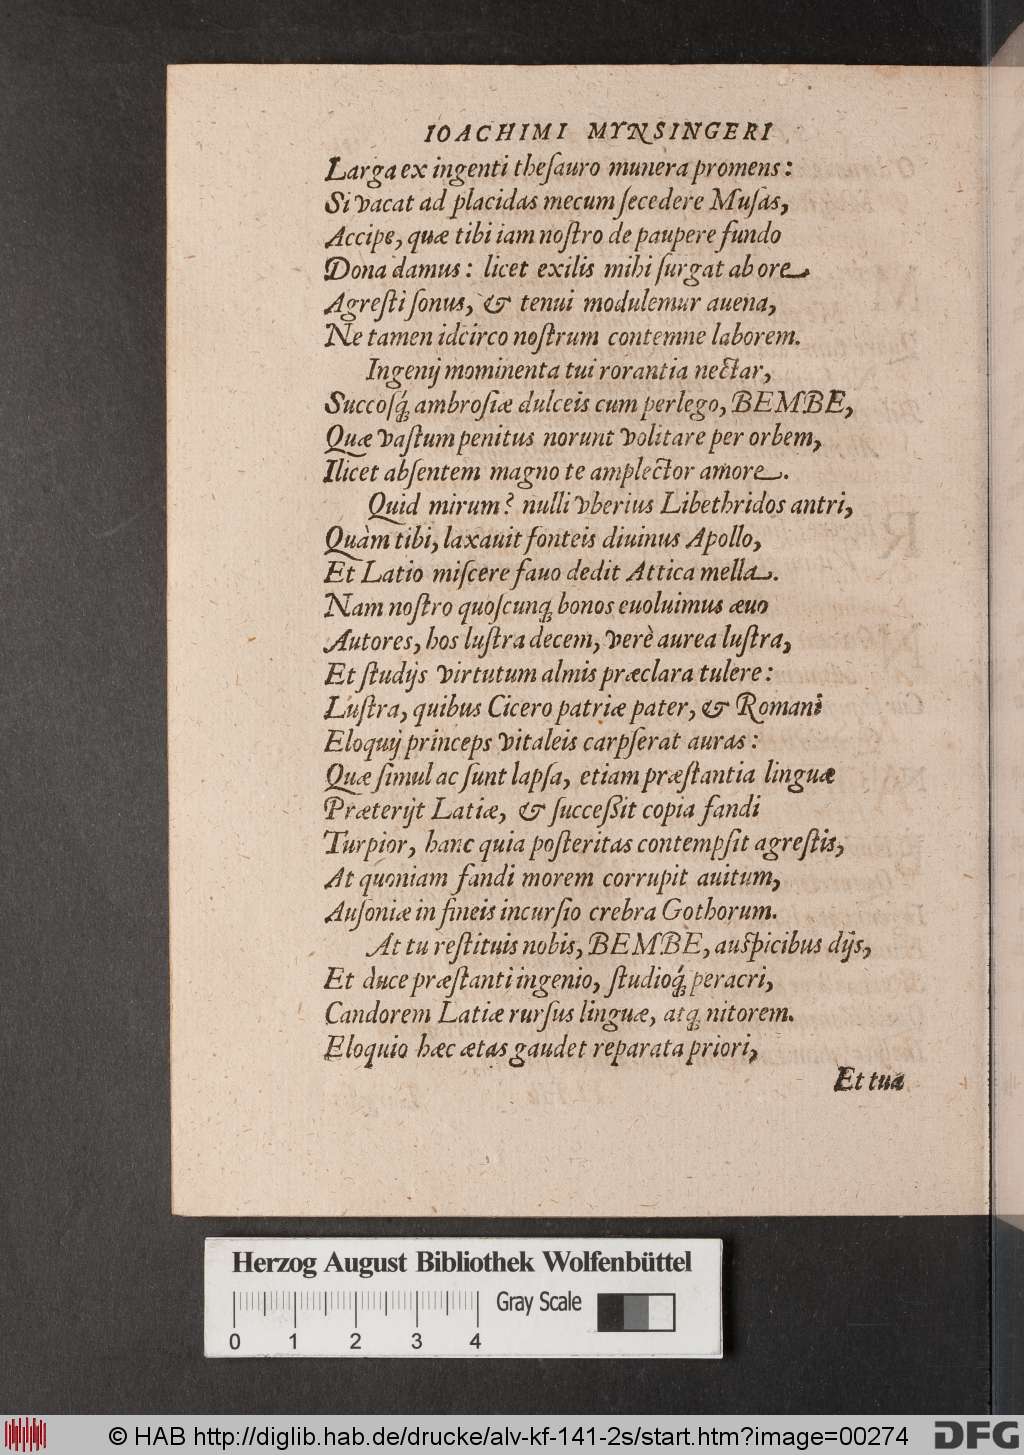 IOACHIMI MYNSINGERI
Larga ex ingenti theſauro munera promens:
Si vacat ad placidas mecum ſecedere Muſas,
Accipe, quæ tibi iam noſtro de paupere fundo
Dona damus: licet exilis mihi ſurgat ab ore
Agreſti ſonus, & tenui modulemur auena,
Ne tamen idcirco noſtrum contemne laborem.
Ingenij mominenta tui rorantia nectar,
Succoſq́; ambroſiæ dulceis cum perlego, BEMBE,
Quæ vaſtum penitus norunt volitare per orbem,
Ilicet abſentem magno te amplector amore.
Quid mirum? nulli vberius Libethridos antri,
Quàm tibi, laxauit fonteis diuinus Apollo,
Et Latio miſcere fauo dedit Attica mella.
Nam noſtro quoſcunq; bonos euoluimus æuo
Autores, hos luſtra decem, verè aurea luſtra,
Et ſtudijs virtutum almis præclara tulere:
Luſtra, quibus Cicero patriæ pater, & Romani
Eloquij princeps vitaleis carpſerat auras:
Quæ ſimul ac ſunt lapſa, etiam præſtantia linguæ
Præterijt Latiæ, & ſucceſſit copia fandi
Turpior, hanc quia poſteritas contempſit agreſtis,
At quoniam fandi morem corrupit auitum,
Auſoniæ in fineis incurſio crebra Gothorum.
At tu reſtituis nobis, BEMBE, auſpicibus dijs,
Et duce præſtanti ingenio, ſtudioq́; peracri,
Candorem Latiæ rurſus linguæ, atq; nitorem.
Eloquio hæc ætas gaudet reparata priori,
Et tua
Herzog August Bibliothek Wolfenbüttel
Gray Scale
0 1 2 3 4
© HAB http://diglib.hab.de/drucke/alv-kf-141-2s/start.htm?image=00274
DFG